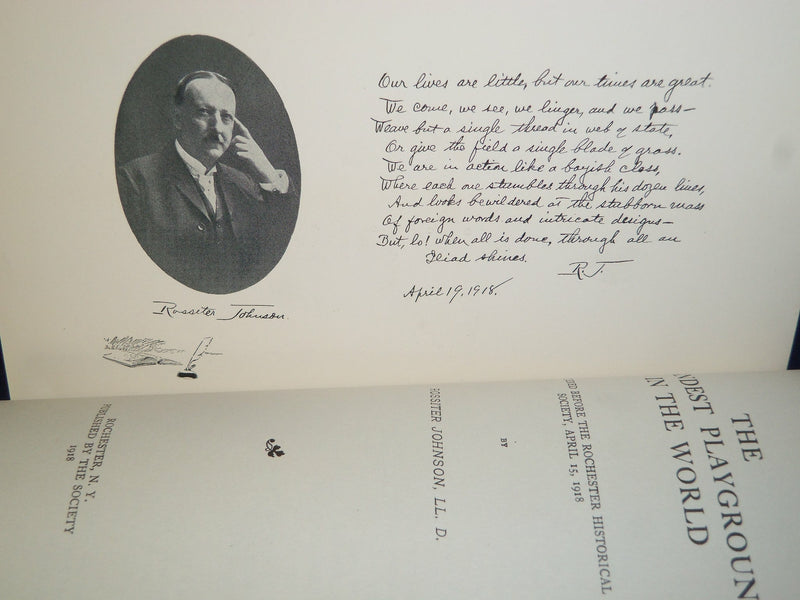 Our lives are little, but our times are great.
We come, we see, we linger, and we pass—
Weave but a single thread in web of state,
Or give the field a single blade of grass.
We are in action like a boyish class,
Where each one stumbles through his dozen lines,
And looks bewildered at the stubborn mass
Of foreign words and intricate designs—
But, lo! when all is done, through all an
Iliad shines.
R. J.
April 19, 1918.
Rossiter Johnson.
THE
NDEST PLAYGROUN
IN THE WORLD
BEFORE THE ROCHESTER HISTORICAL
SOCIETY, APRIL 15, 1918
BY
OSSITER JOHNSON, LL. D.
ROCHESTER, N. Y.
PUBLISHED BY THE SOCIETY
1918